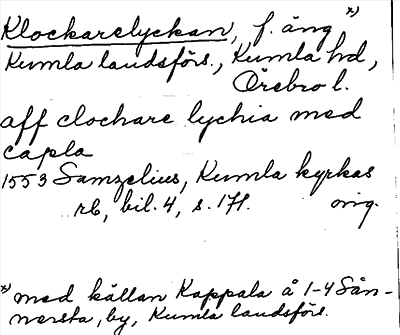 Klockarelyckan, f. äng *)
Kumla landsförs., Kumla hd,
Örebro l.
aff clochare lychia med
capla
1553 Samzelius, Kumla kyrkas
rb, bil. 4, s. 171. orig.
*) med källan Kappala å 1-4 Sån-
nersta, by, Kumla landsförs.